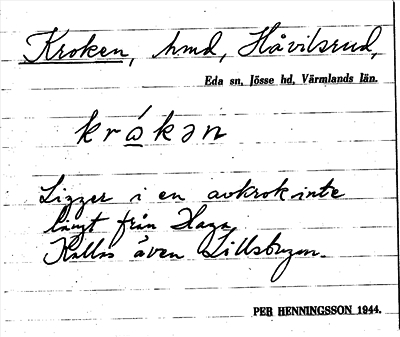 Kroken, hmd, Håvilsrud,
Eda sn, Jösse hd, Värmlands län.
krókən
Ligger i en avkrok inte
långt från Haga.
Kallas även Lillstugan.
PER HENNINGSSON 1944.